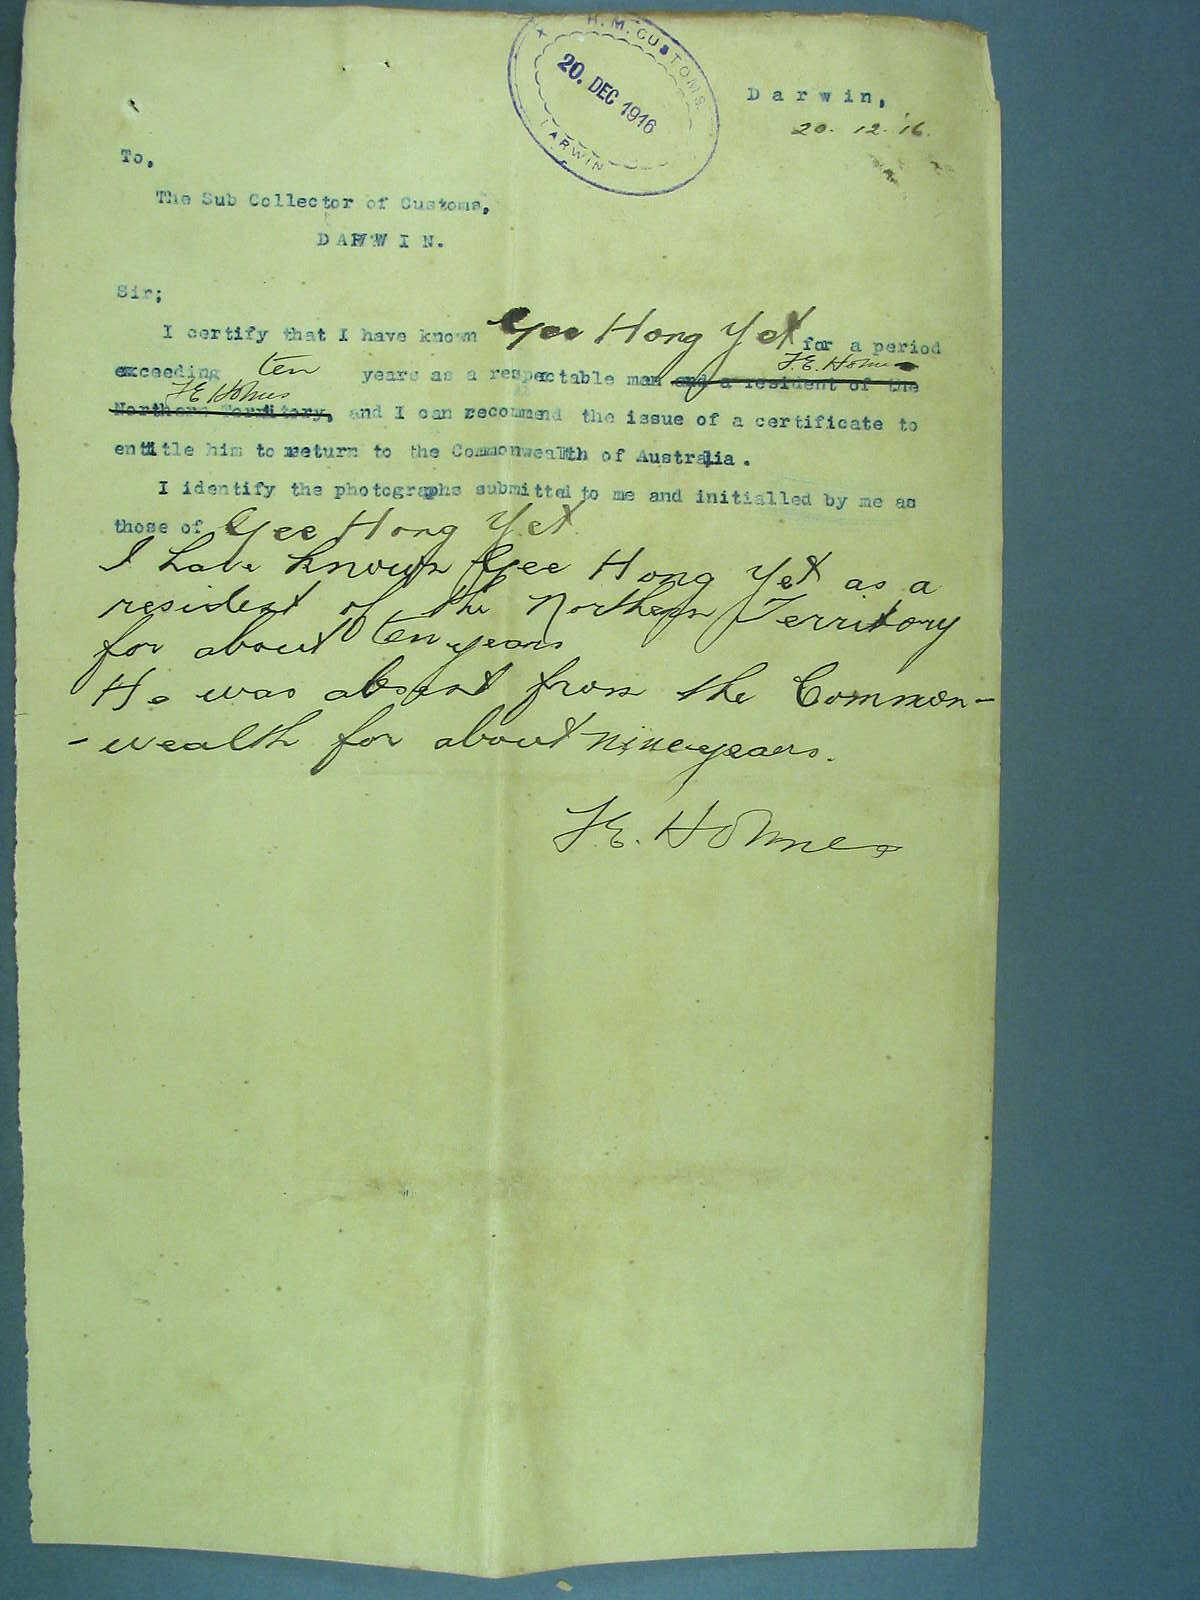 H.M. CUSTOMS.
20. DEC 1916
DARWIN
Darwin,
20.12.'16.
To,
The Sub Collector of Customs,
DARWIN.
Sir;
I certify that I have known Yee Hong Yet for a period
F.E. Holmes
exceeding ten years as a respectable man and a resident of the
F.E. Holmes
Northern Territory, and I can recommend the issue of a certificate to
entitle him to return to the Commonwealth of Australia.
I identify the photographs submitted to me and initialled by me as
those of Yee Hong Yet
I have known Yee Hong Yet as a
resident of the Northern Territory
for about ten years
He was absent from the Common-
-wealth for about nine years.
F.E. Holmes